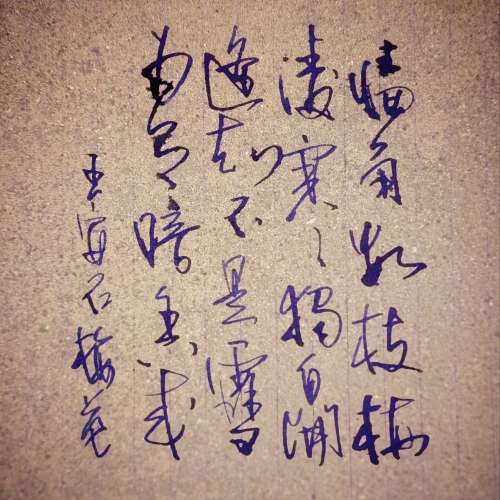 墙角数枝梅
凌寒独自開
遥知不是雪
为有暗香来
王安石梅花